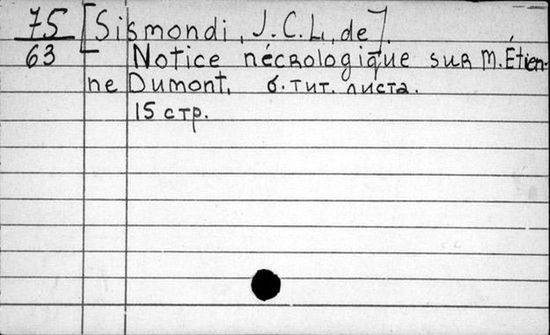 75 [Sismondi, J.C.L. de].
63 Notice nécrologique sur m. Étien-
ne Dumont. б. тит. листа.
15 стр.